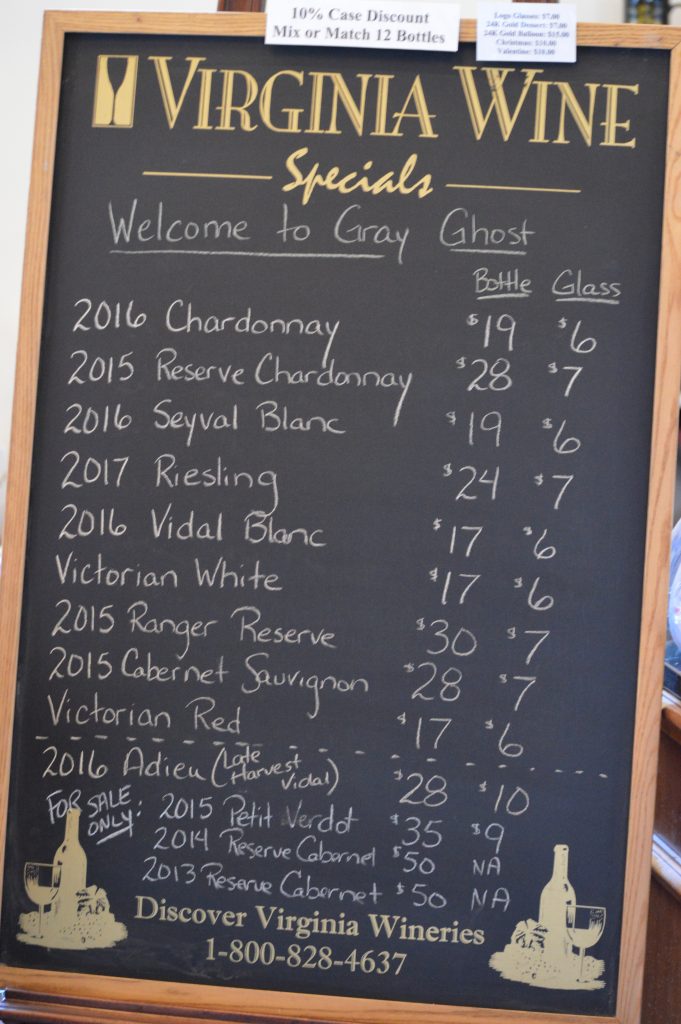 10% Case Discount
Mix or Match 12 Bottles
Logo Glasses: $7.00
24K Gold Dessert: $7.00
24K Gold Balloon: $15.00
Christmas: $10.00
Valentine: $10.00
VIRGINIA WINE
Specials
Welcome to Gray Ghost
Bottle Glass
2016 Chardonnay $19 $6
2015 Reserve Chardonnay $28 $7
2016 Seyval Blanc $19 $6
2017 Riesling $24 $7
2016 Vidal Blanc $17 $6
Victorian White $17 $6
2015 Ranger Reserve $30 $7
2015 Cabernet Sauvignon $28 $7
Victorian Red $17 $6
2016 Adieu (Late Harvest Vidal) $28 $10
FOR SALE ONLY: 2015 Petit Verdot $35 $9
2014 Reserve Cabernet $50 NA
2013 Reserve Cabernet $50 NA
Discover Virginia Wineries
1-800-828-4637